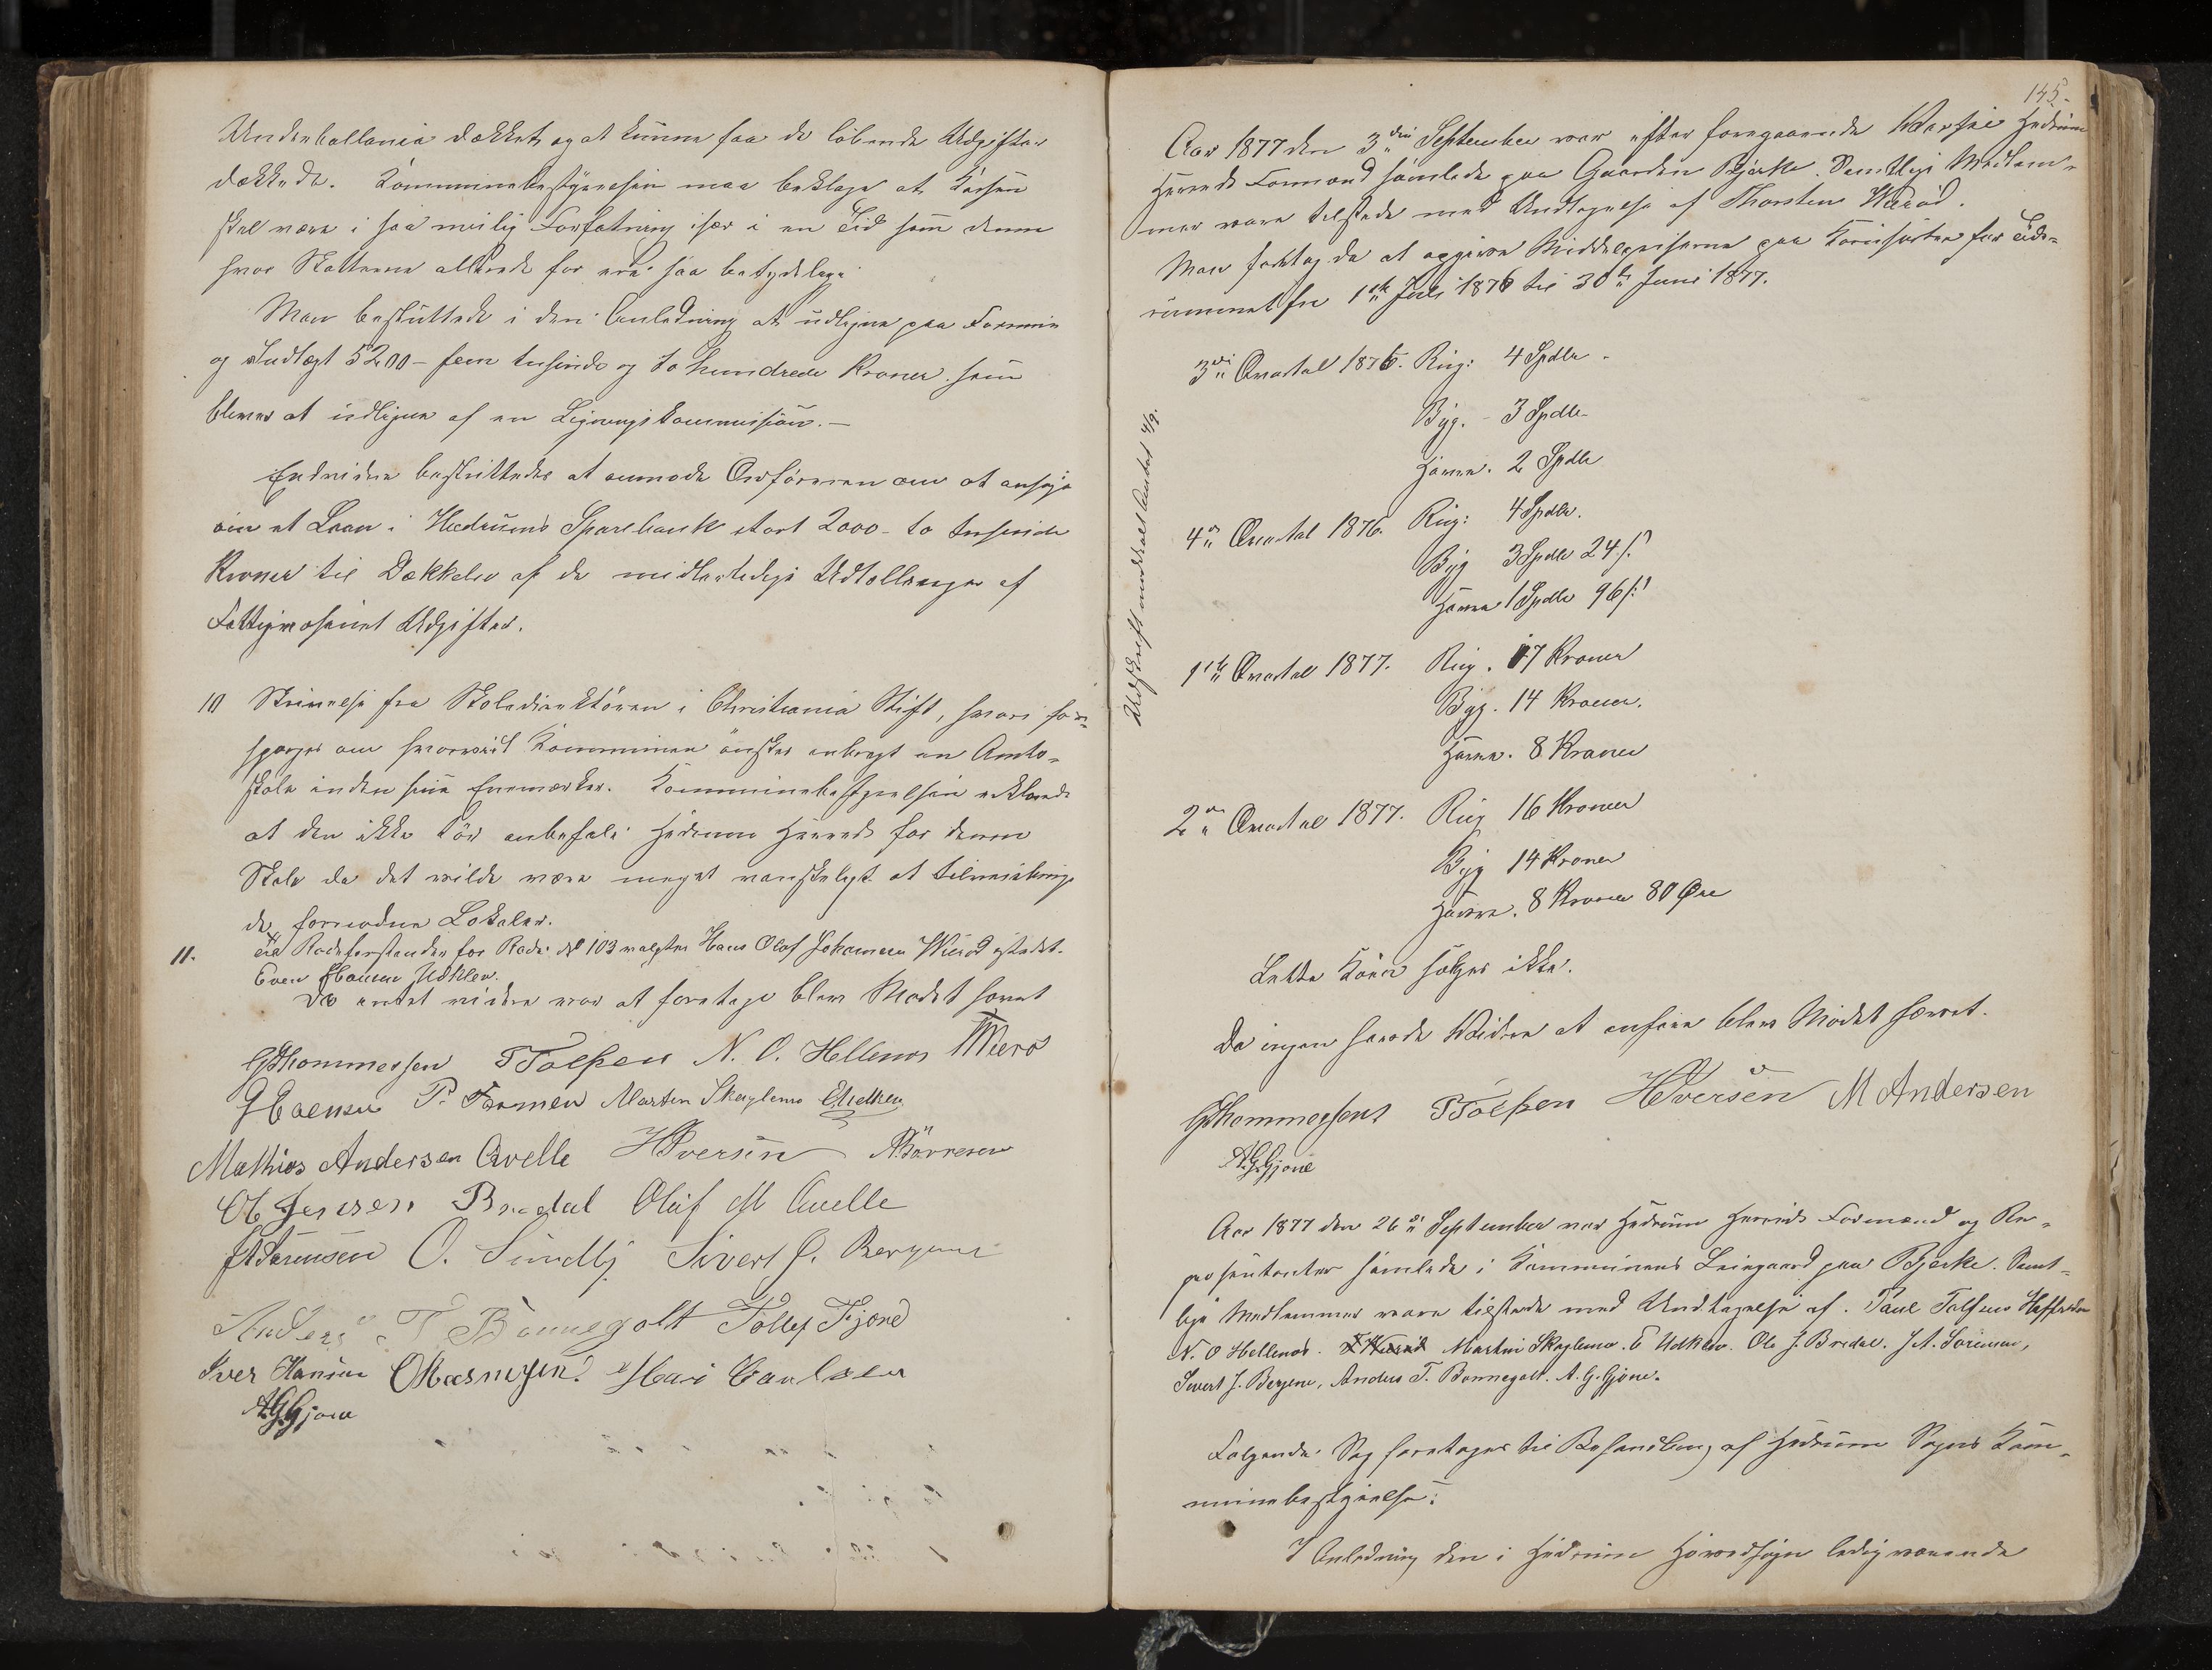 Underballance dækket og at kunne faa de løbende Udgifter
dækkede. Kommunebestyrelsen maa beklage at Kassen
skal være i saa meslig Forfatning især i en Tid som denne
hvor Skatterne allerede før ere saa betydelige.
Man besluttede i den Anledning at udligne paa Formue
og Indtægt 5200 - fem tusinde og to hundrede Kroner som
bliver at udligne af en Ligningskommission. -
Endvidere besluttedes at anmode Ordføreren om at ansøge
om et Laan i Hedrums Sparebank stort 2000 - to tusinde
Kroner til Dækkelse af de midlertidige Udtællinger af
Fattigvæsenets Udgifter.
10 Skrivelse fra Skoledirektøren i Christiania Stift, hvori for-
spørges om hvorvidt Kommunen ønsker anbragt en Amts-
skole inden sine Enemærker. Kommunebestyrelsen erklærede
at den ikke tør anbefale Hedrum Herred for denne
Skole da det vilde være meget vanskeligt at tilveiebringe
de fornødne Lokaler.
11. Til Rodeforstander for Rode No 103 valgtes Hans Olaf Johannesen Wierød istedet
Even Hansen Udklev.
Da intet videre var at foretage blev Mødet hævet
G Thommesen T Tolfsen N. O. Hellenes
P. Mathias Andersen Qvelle H Iversen
Ol Jensen Bredal Oluf M Qvelle
J A Sørensen O. Sundby Sivert J. Bergene
Anders T Bonnegolt Tollef Fjøre
Iver Hansen O Rasmusen Hans Paulsen
A. G. Gjone
145.
Aar 1877 den 3die September var efter foregaaende Varsel Hedrum
Herreds Formænd samlede paa Gaarden Bjerke. Samtlige Medlem-
mer vare tilstede med Undtagelse af Thorsten Wærød.
Man foretog da at opgive Middelpriserne paa Kornsorter for Tids-
rummet fra 1ste Juli 1876 til 30te Juni 1877.
3die Qvartal 1876. Rug: 4 Spdlr -
Byg. - 3 Spdlr
Havre. 2 Spdlr
4de Qvartal 1876. Rug: 4 Spdlr.
Byg 3 Spdlr 24 ſ
Havre 1 Spdlr 96 ſ
1ste Qvartal 1877. Rug. 17 Kroner
Byg. 14 Kroner.
Havre. 8 Kroner
2de Qvartal 1877. Rug 16 Kroner
Byg 14 Kroner
Havre. 8 Kroner 80 Øre
Udskrift meddelt Amtet 4/9.
Lette Korn sælges ikke.
Da ingen havde Videre at anføre blev Mødet hævet.
G Thommesen T Tolfsen H Iversen M Andersen
A. G. Gjone
Aar 1877 den 26de September var Hedrum Herreds Formænd og Re-
præsentanter samlede i Kommunens Leiegaard paa Bjerke. Samt-
lige Medlemmer vare tilstede med Undtagelse af. Paul Tolfsen
N. O Hellenes. Martin Skaglemo. E Udklev. Ole J. Bredal. J. A. Sørensen,
Sivert J. Bergene, Anders T. Bonnegolt. A. G. Gjone.
Følgende Sag foretages til Behandling af Hedrum Sogns Kom-
munebestyrelse:
I Anledning den i Hedrum Hovedsogn ledigværende